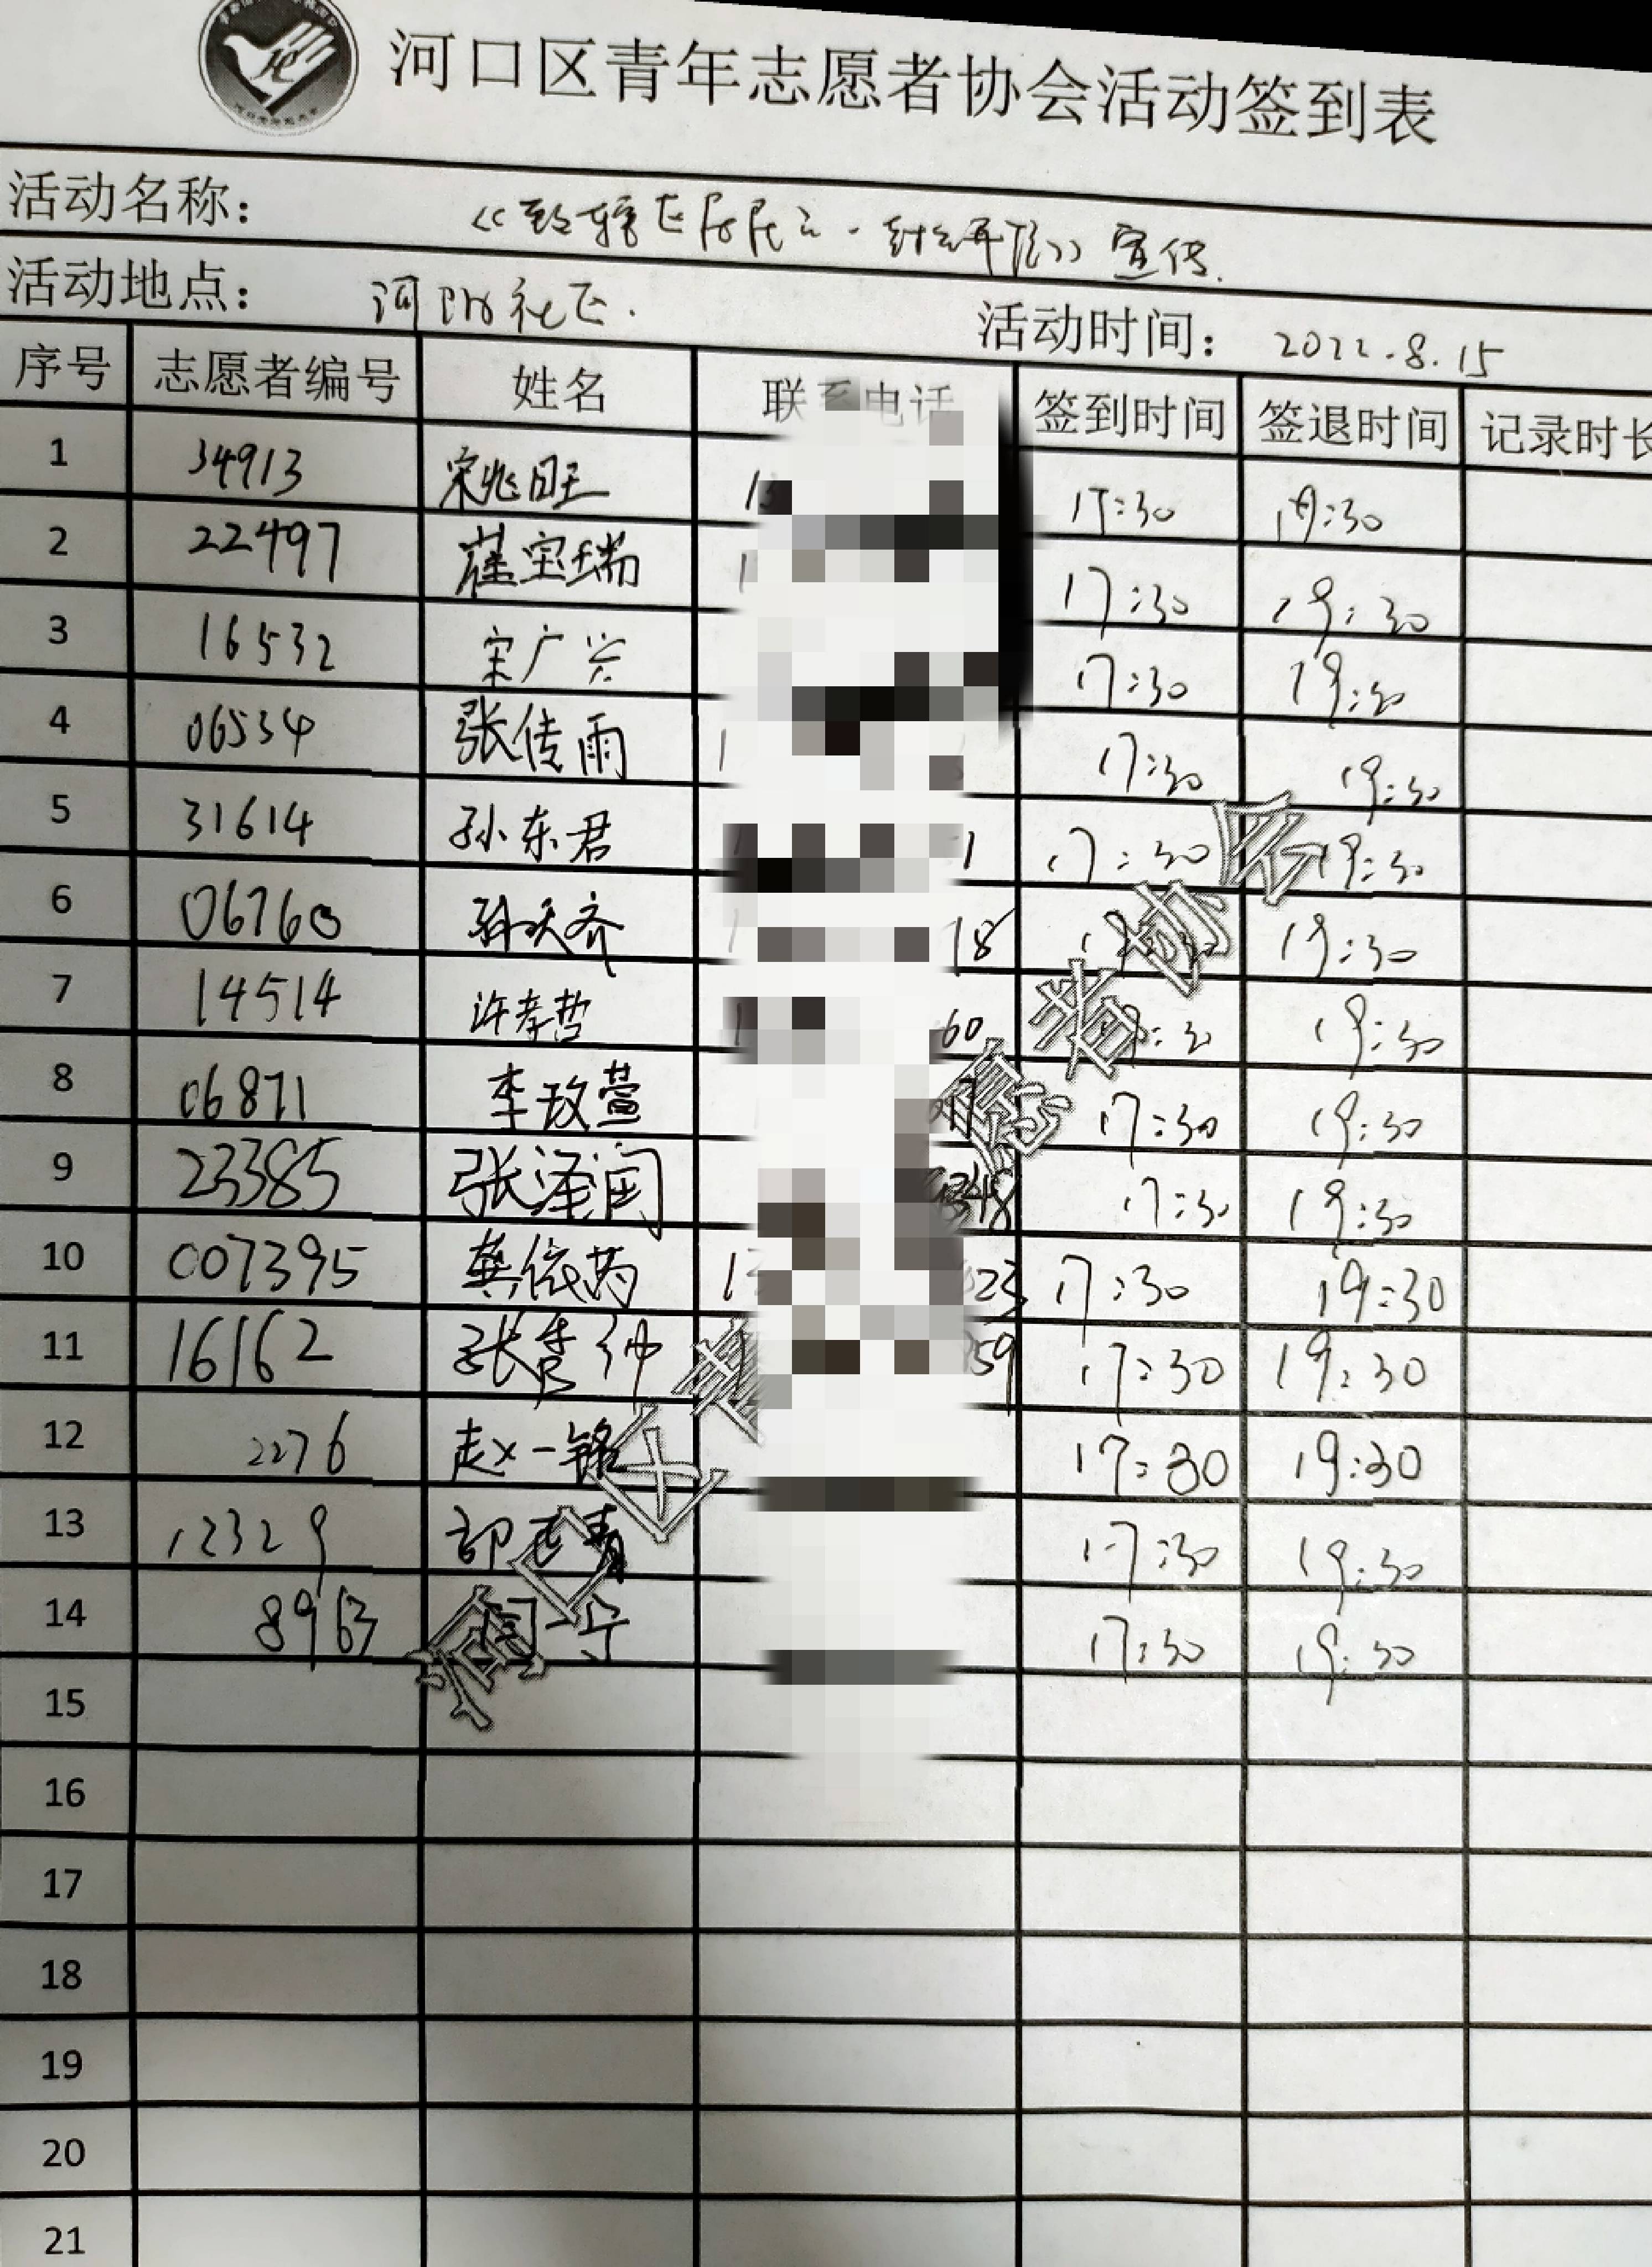 河口区青年志愿者协会活动签到表
活动名称： 《致辖区居民之一封公开信》宣传.
活动地点： 河社区. 活动时间： 2022.8.15
序号 志愿者编号 姓名 联系电话 签到时间 签退时间 记录时长
1 34913 宋兆旺 17:30 19:30
2 22497 崔宝瑞 1 17:30 19:30
3 16532 宋广兴 17:30 19:30
4 06534 张传雨 1 17:30 19:30
5 31614 孙东君 1 17:30 19:30
6 06760 孙天齐 1 18 19:30
7 14514 许孝哲 60 19:30
8 06871 李玫萱 17:30 19:30
9 23385 张泽闰 348 17:30 19:30
10 007395 龚依芮 1 23 17:30 19:30
11 16162 张 59 17:30 19:30
12 2276 赵一锦 17:30 19:30
13 12329 17:30 19:30
14 8963 闫一宁 17:30 19:30
15
16
17
18
19
20
21
河口区志愿者协会